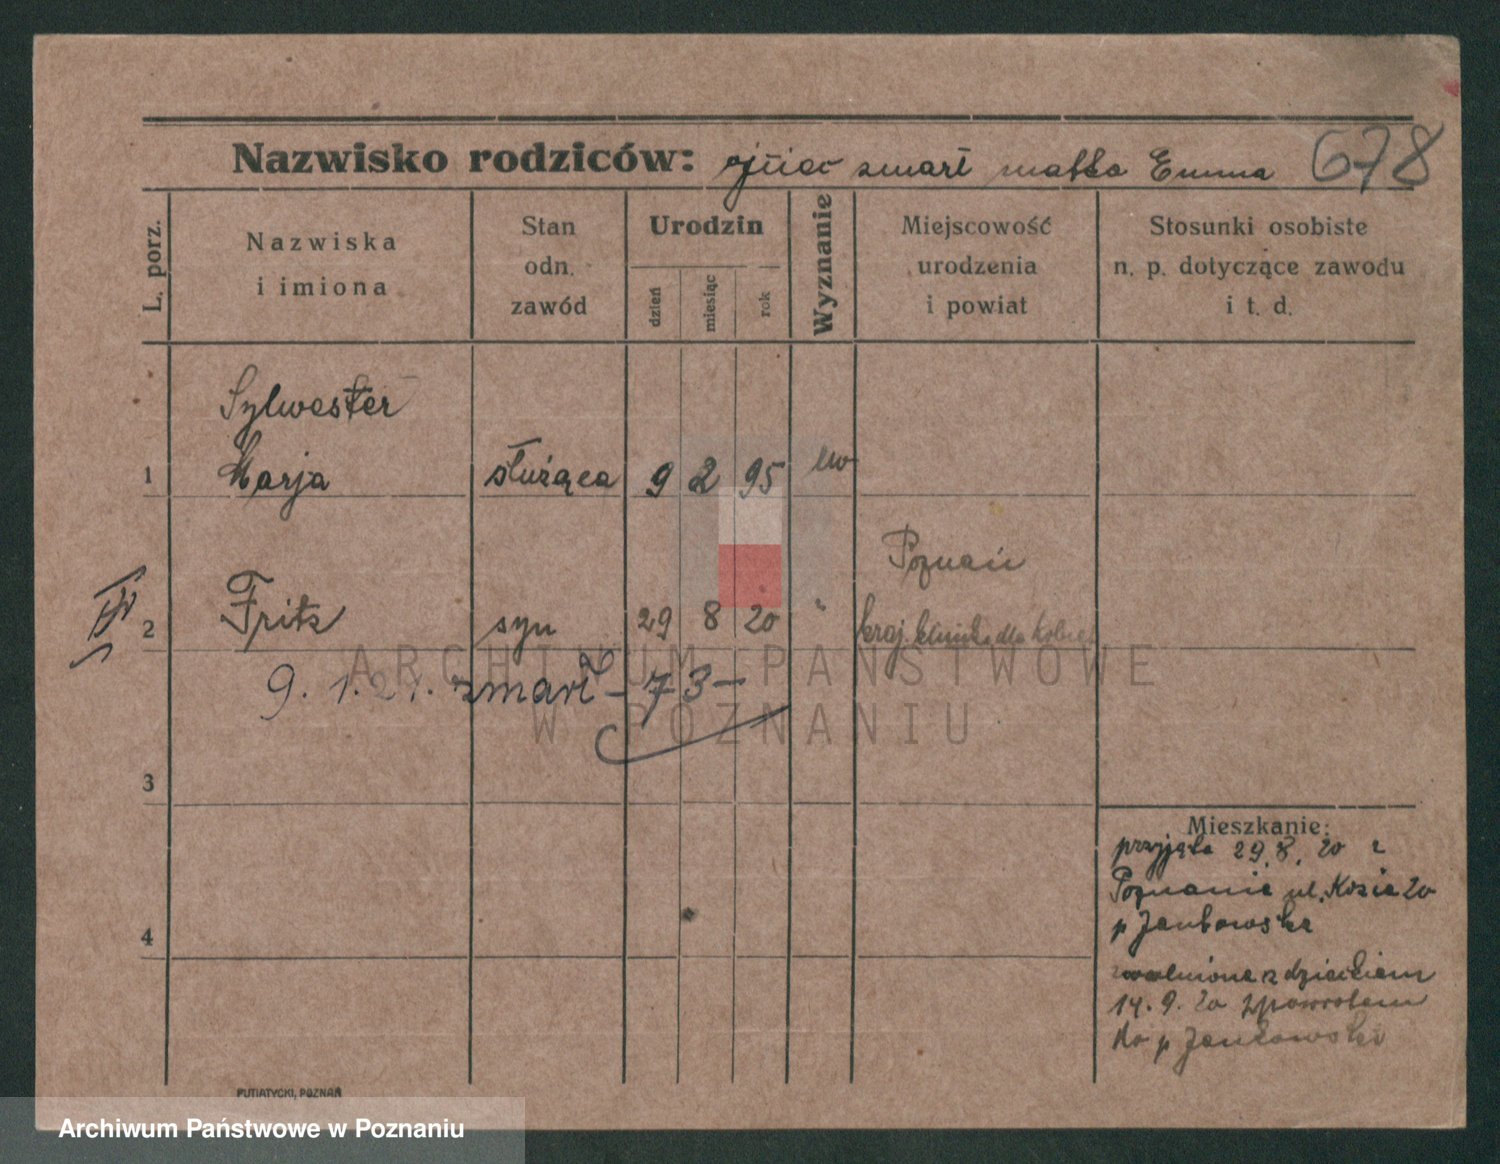 Nazwisko rodziców: ojciec zmarł matka Emma 678
L. porz.
Nazwiska
i imiona
Stan
odn.
zawód
Urodzin
dzień
miesiąc
rok
Wyznanie
Miejscowość
urodzenia
i powiat
Stosunki osobiste
n. p. dotyczące zawodu
i t. d.
Sylwester
1 Marja służąca 9 2 95 ew
Poznań
2 Fritz syn 29 8 20 " kraj. klinika dla kobiet
9. 1. 21. zmarł – 73 –
3
4
Mieszkanie:
przyjęta 29. 8. 20 z
Poznania ul. Kozia 20
p Jankowska
zwolniona z dzieckiem
14. 9. 20 z powrotem
do p Jankowski
PUTIATYCKI, POZNAŃ
ARCHIWUM PAŃSTWOWE
W POZNANIU
Archiwum Państwowe w Poznaniu